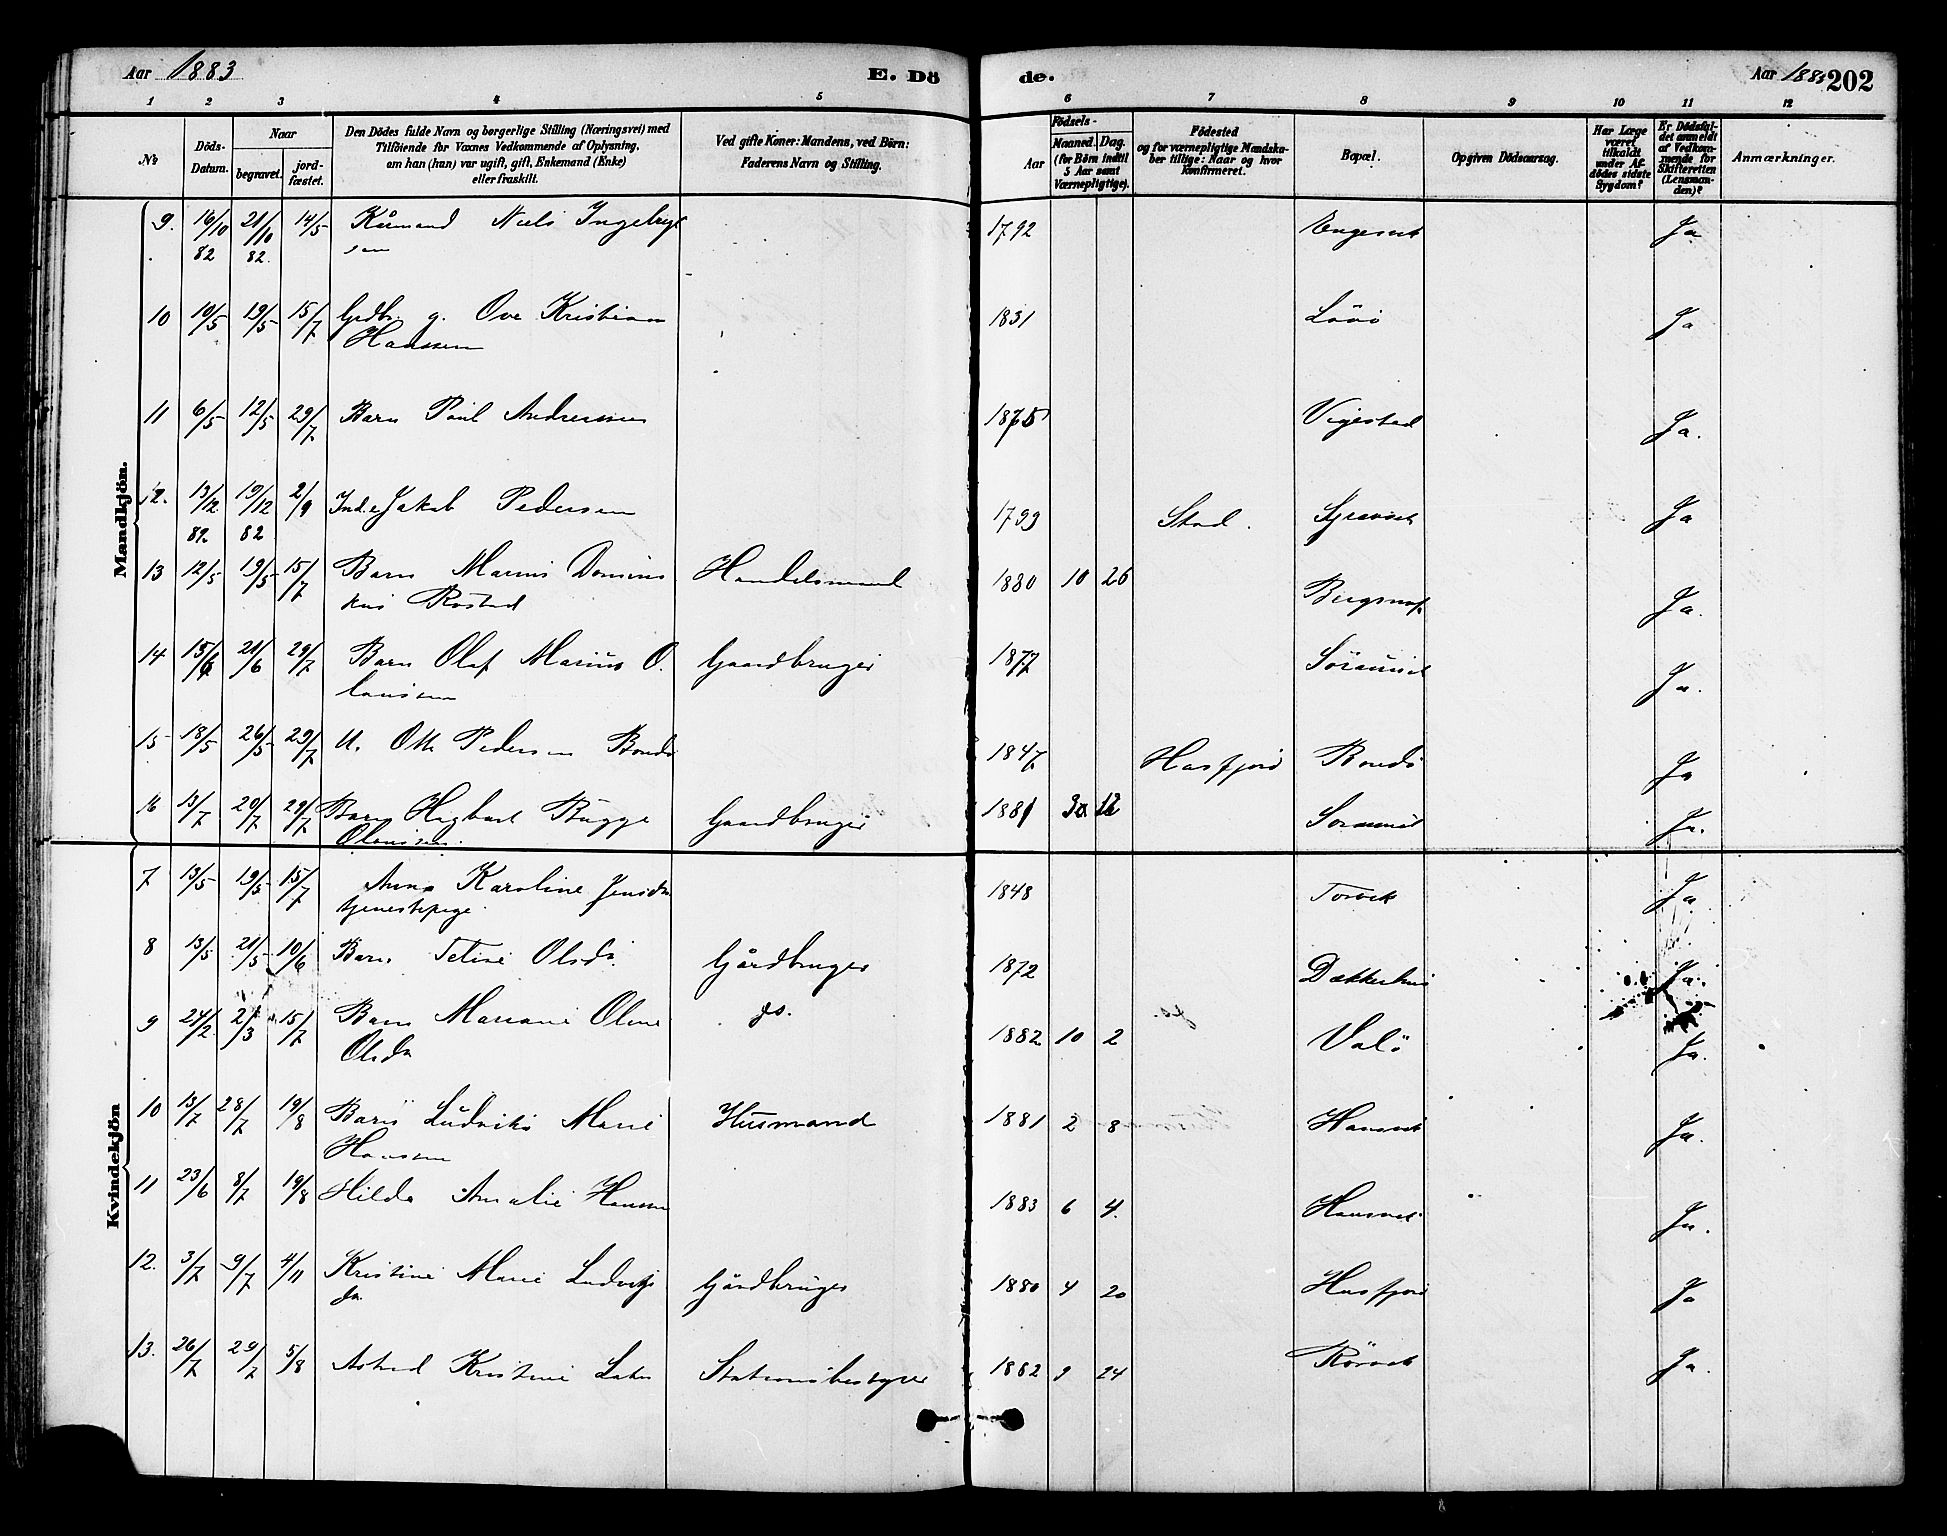 Aar 1883 E. Dö
de. Aar 1883 202
1 2 3 4 5 6 7 8 9 10 11 12
No
Döds-Datum.
Naar
begravet.
jord-fæstet.
Den Dödes fulde Navn og borgerlige Stilling (Næringsvei) med
Tilföiende for Voxnes Vedkommende af Oplysning,
om han (hun) var ugift, gift, Enkemand (Enke)
eller fraskilt.
Ved gifte Koner: Mandens, ved Börn:
Faderens Navn og Stilling.
Födsels-
Aar
Maaned. Dag.
(for Börn indtil
5 Aar samt
Værnepligtige).
Födested
og for værnepligtige Mandska-
ber tillige: Naar og hvor
konfirmeret.
Bopæl.
Opgiven Dödsaarsag.
Har Læge
været
tilkaldt
under Af-
dödes sidste
Sygdom?
Er Dödsfal-
det anmeldt
af Vedkom-
mende for
Skifteretten
(Lensman-
den)?
Anmærkninger.
Mandkjön.
9. 16/10 82 21/10 82. 14/5 Kårmand Niels Ingebrigt
sen 1792 Ja
10 10/5 19/5 15/7 Grdbr. g. Ove Kristian
Hanssen 1831 Ja
11 6/5 12/5 29/7 Barn Paul Andreassen 1875 Vigestad Ja.
12. 13/12 82 19/12 82 2/9 Ind. Jakob Pedersen 1799 Stod. Ja
13 12/5 19/5 15/7 Barn Marius Domini
kus Rostad Handelsmand 1880 10 26 Ja.
14 15/6 21/6 29/7 Barn Olaf Marius O.
laussen Gaardbruger 1877 Ja.
15 18/5 26/5 29/7 U. Ott. Pedersen Bondö 1847. Hasfjord Bondö Ja
16 13/7 20/7 29/7 Barn Hagbart Bugge
Olaussen. Gaardbruger 1881 Ja.
Kvindekjön
7 13/5 19/5 15/7 Anna Karoline Jensdr
tjenestepige. 1848 Torvik Ja
8 13/5 21/5 10/6 Barn Teline Olsdr. Gårdbruger 1872 Dækkerhus Ja.
9 24/2 2/3 15/7 Barn Mariane Oline
Olsdr do. 1882 10 2 Valö Ja.
10 13/7 28/7 19/8 Barn Ludvike Marie
Hansen Husmand 1881 2 8 Hansvik Ja.
11 23/6 8/7 19/8 Hilda Amalie Hansen 1883 6 4. Hansvik Ja.
12. 3/7 9/7 4/11 Kristine Marie Ludvigs
dr. Gårdbruger 1880 4 20 Hasfjord Ja
13. 26/7 29/7 5/8 Astrid Kristine Stationsbestyrer 1882 9 24 Rörvik Ja.